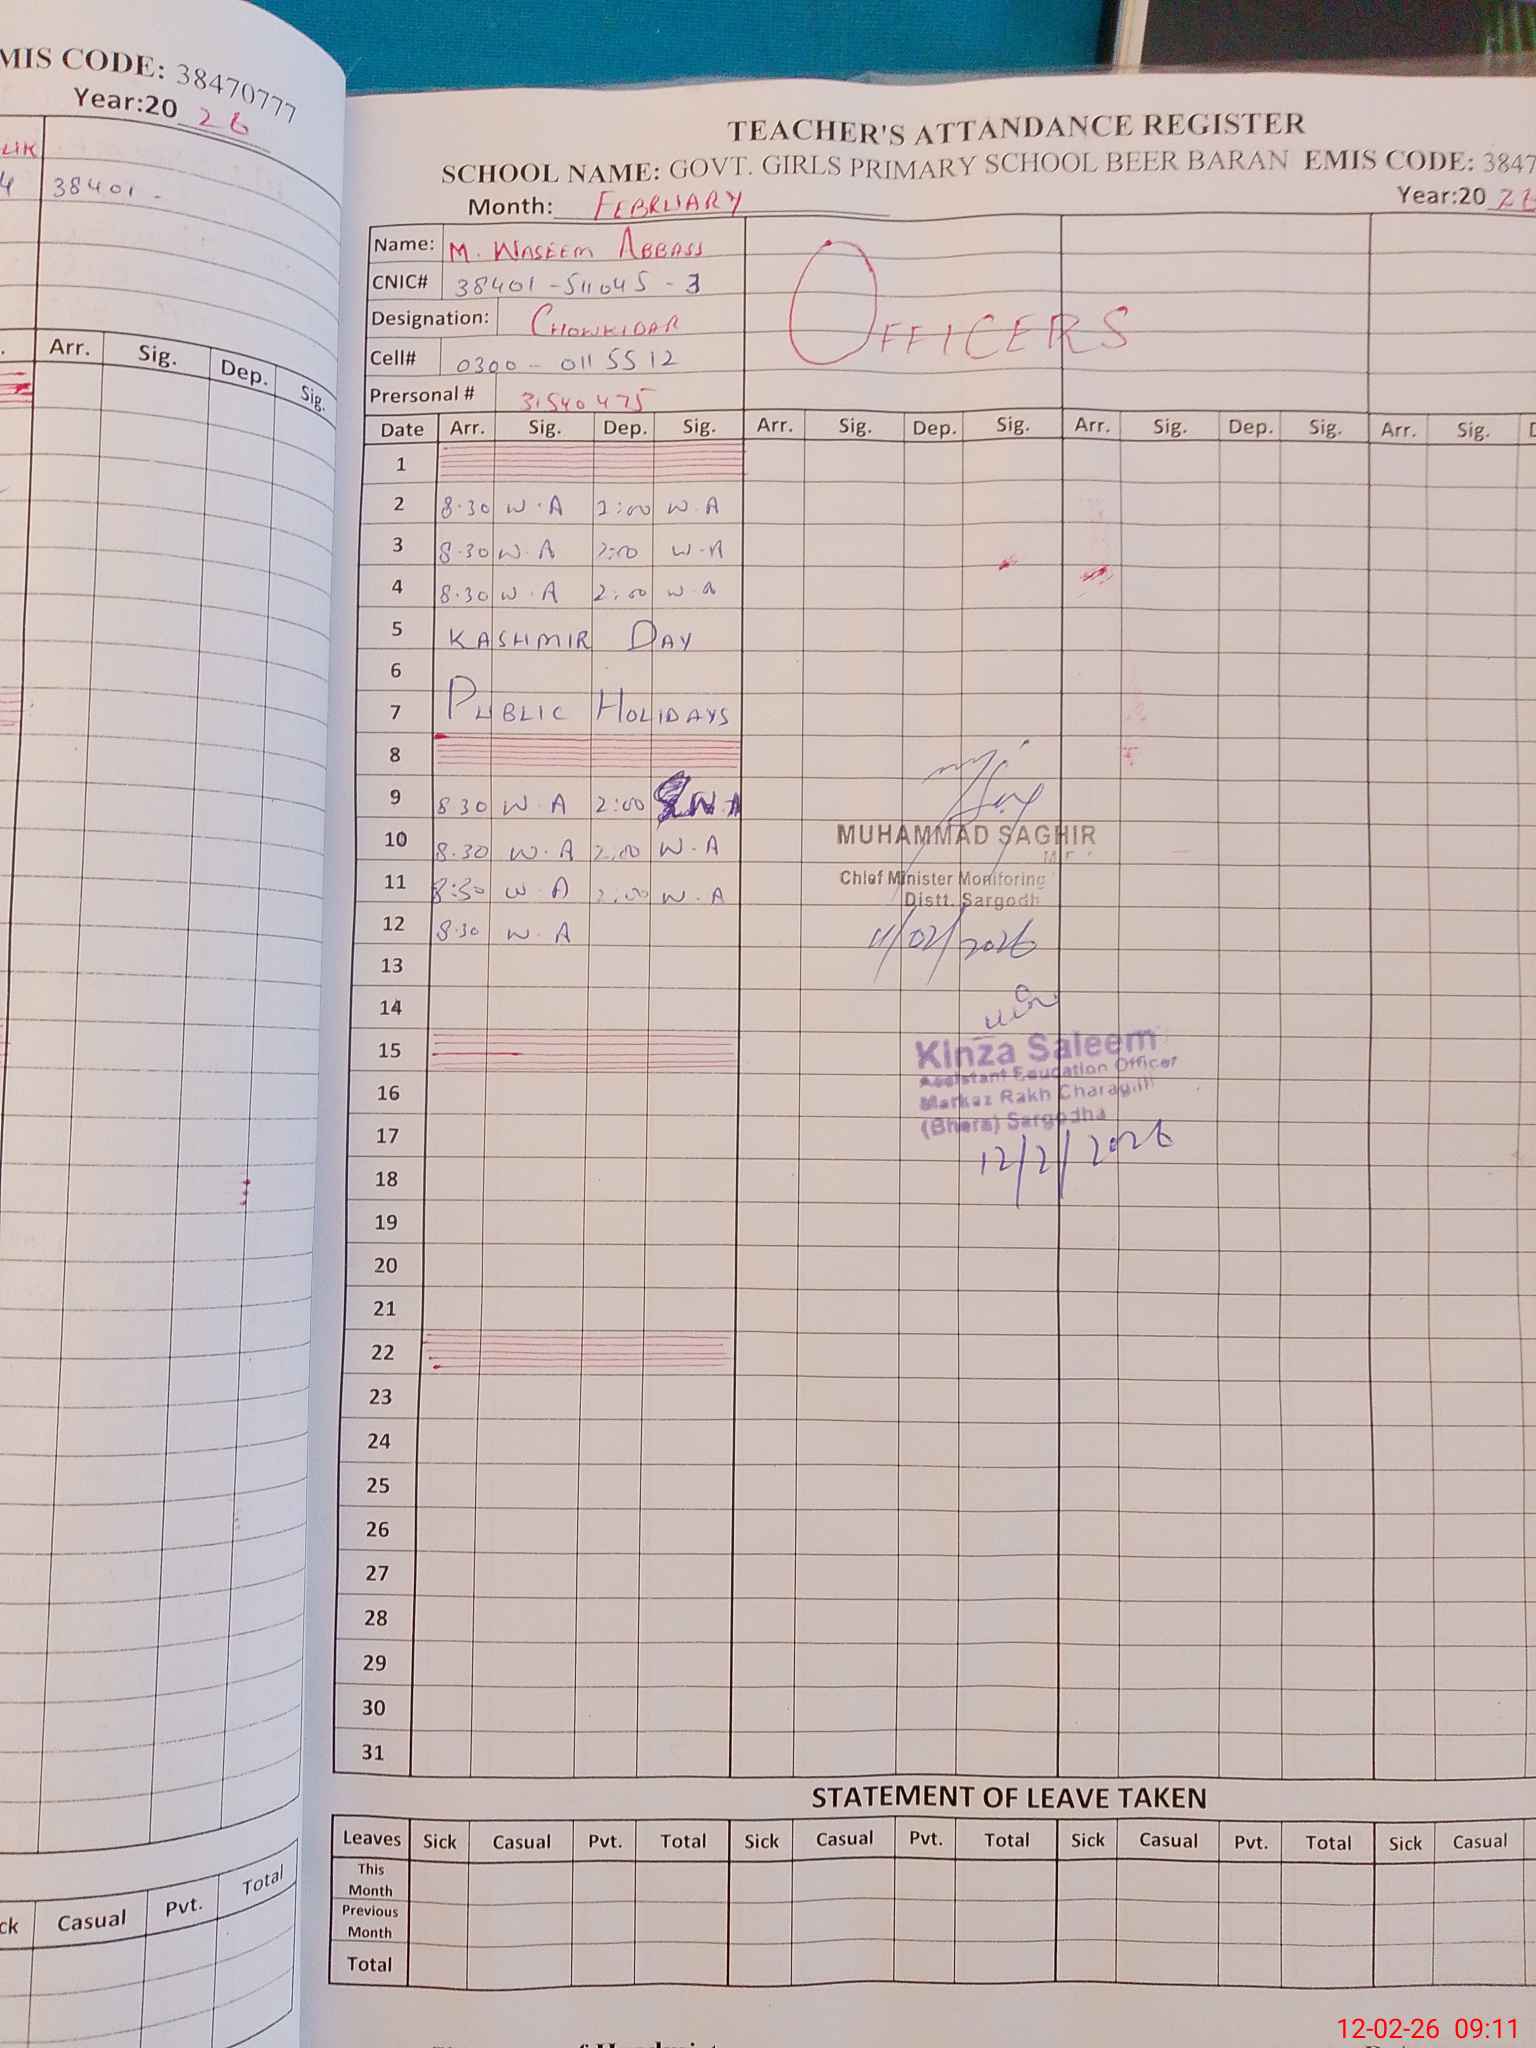 MIS CODE: 38470777
Year:20 26
LIK
4 38401 -
Arr. Sig. Dep. Sig.
ck Casual Pvt. Total
TEACHER'S ATTANDANCE REGISTER
SCHOOL NAME: GOVT. GIRLS PRIMARY SCHOOL BEER BARAN EMIS CODE: 3847
Month: FEBRUARY Year:20 26
Name: M. WASEEM ABBASS
OFFICERS
CNIC# 38401 - 511045 - 3
Designation: CHOWKIDAR
Cell# 0300 - 0115512
Prersonal # 31540475
Date Arr. Sig. Dep. Sig. Arr. Sig. Dep. Sig. Arr. Sig. Dep. Sig. Arr. Sig. D
1
2 8.30 W.A 2:00 W.A
3 8.30 W.A 2:00 W.A
4 8.30 W.A 2:00 W.A
5 KASHMIR DAY
6
7 PUBLIC HOLIDAYS
8
9 8 30 W.A 2:00 W.A
10 8.30 W.A 2:00 W.A
MUHAMMAD SAGHIR
11 8:30 W.A 2:00 W.A
Chief Minister Monitoring
Distt. Sargodh
12 8.30 W.A
11/02/2026
13
14
15
Kinza Saleem
Assistant Education Officer
16
Markaz Rakh Charagah
(Bhera) Sargodha
17
12/2/2026
18
19
20
21
22
23
24
25
26
27
28
29
30
31
STATEMENT OF LEAVE TAKEN
Leaves Sick Casual Pvt. Total Sick Casual Pvt. Total Sick Casual Pvt. Total Sick Casual
This Month
Previous Month
Total
12-02-26 09:11